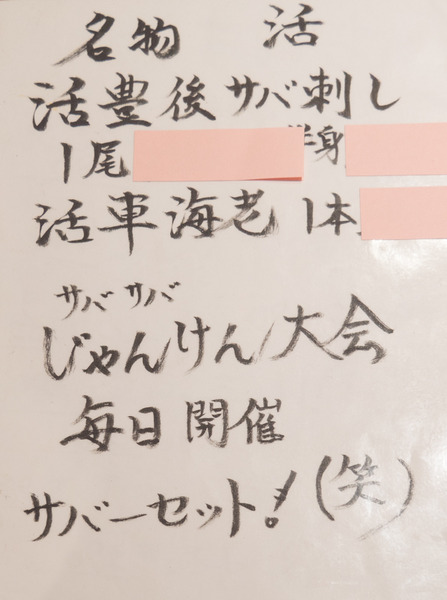 名物 活
活豊後サバ刺し
1尾 半身
活車海老 1本
サバサバ
じゃんけん大会
毎日開催
サバーセット!(笑)